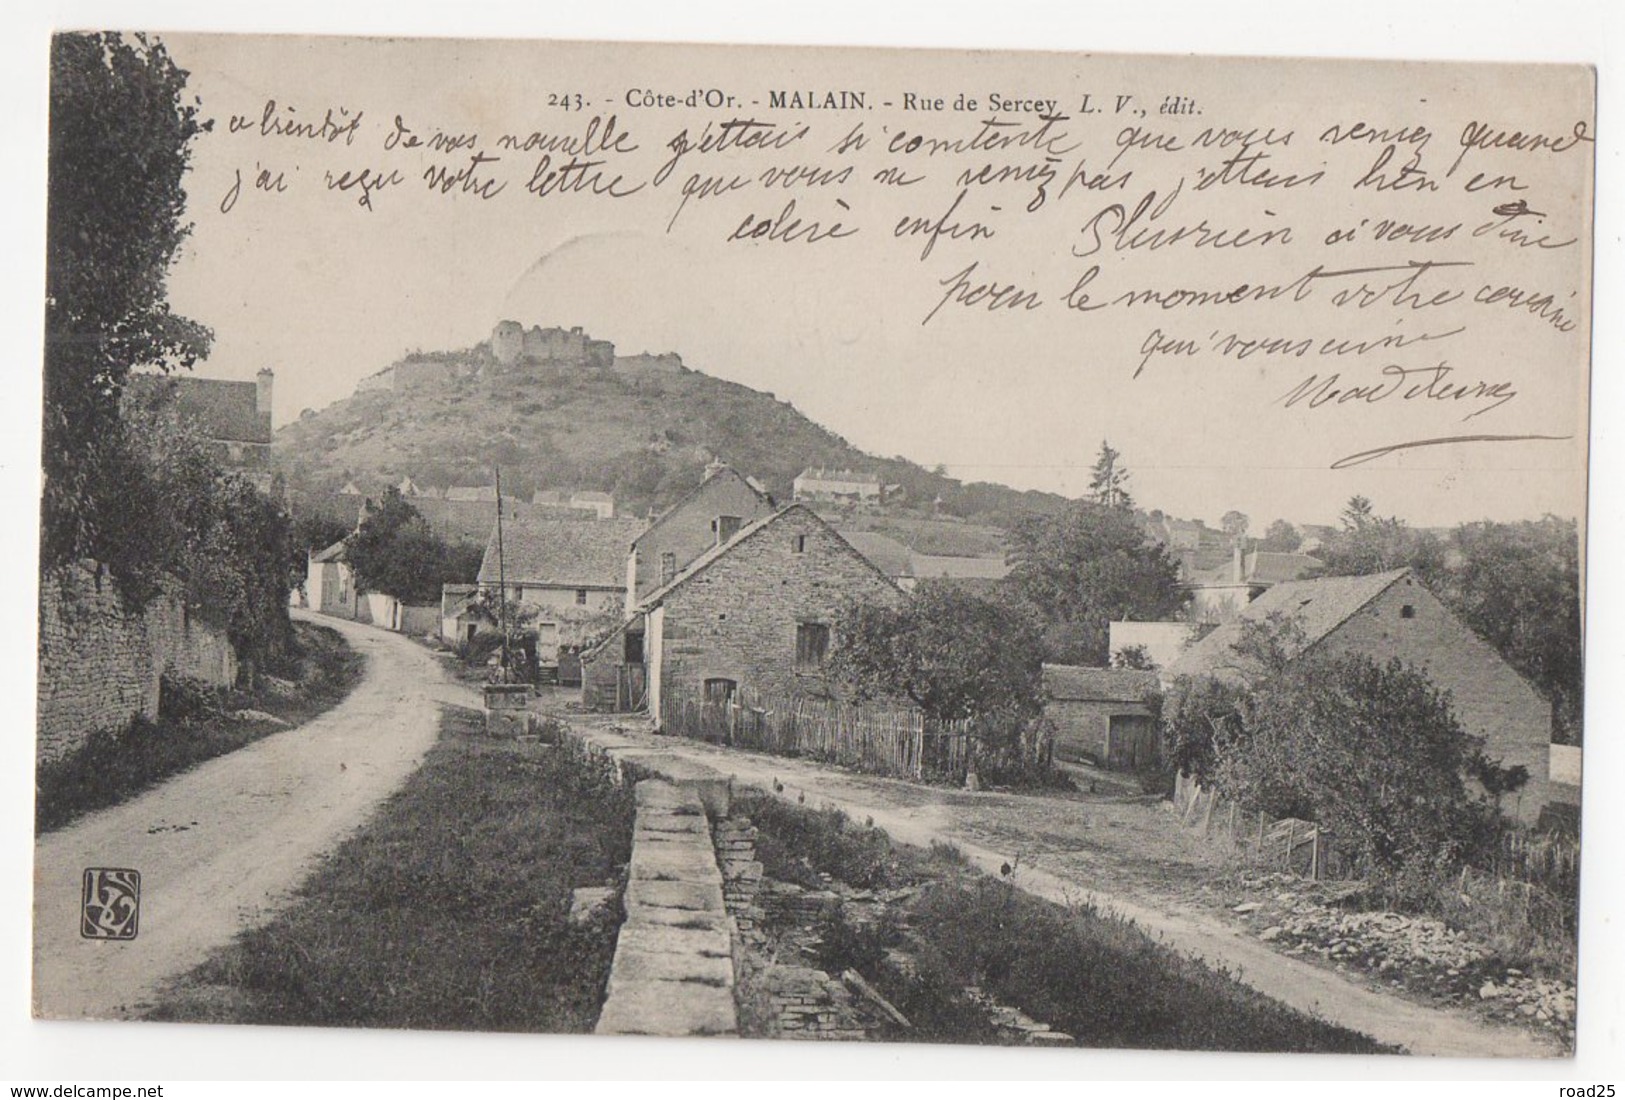 243. - Côte-d'Or. - MALAIN. - Rue de Sercey L. V., édit.
a bientôt de vos nouvelle j'ettais si contente que vous veniez quand
j'ai reçu votre lettre que vous ne veniez pas j'ettais bien en
colère enfin Plusrien a vous dire
pour le moment votre cousine
qui vous aime
Madeleine
delcampe.net
road25